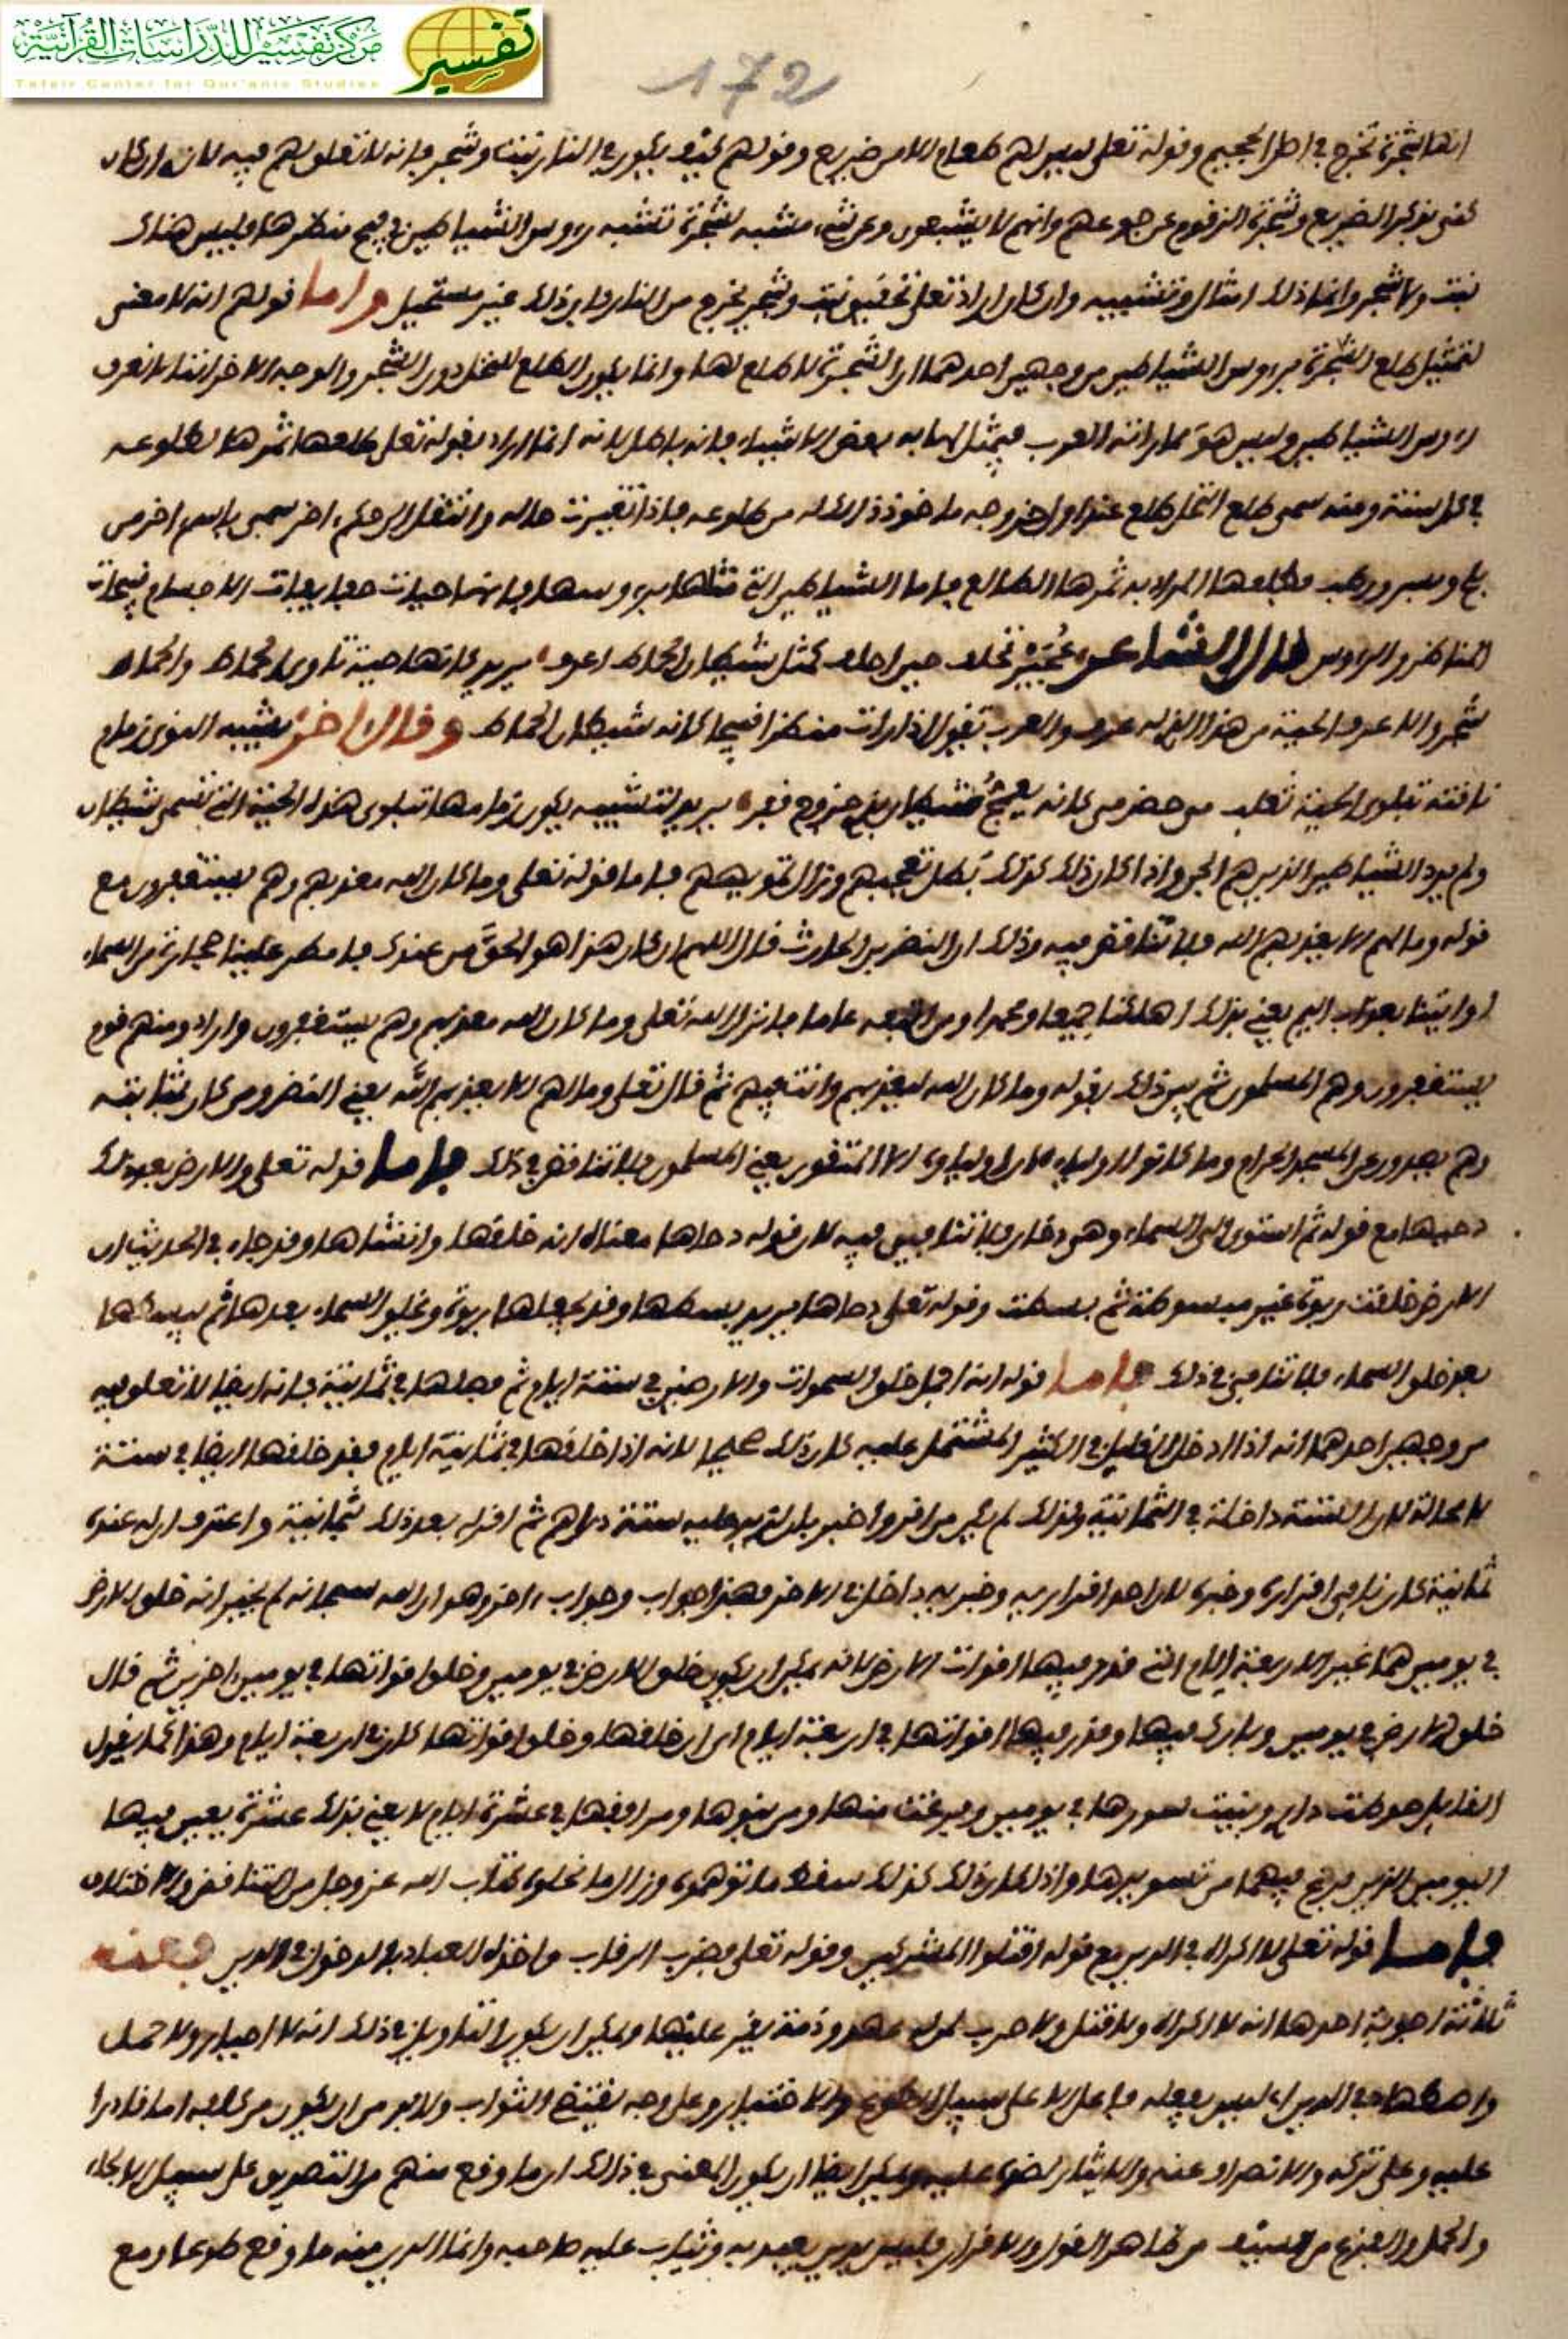 مركز تفسير للدراسات القرآنية
تفسير
Tafsir Center for Qur'anic Studies
172
انها شجرة تخرج في اصل الجحيم وقوله تعلى ليس لهم طعام الا من ضريع وقولهم كيف يكون في النار نبت وشجر فإنه لا تعلق لهم فيه لانه ان كان
كنى بذكر الضريع وشجرة الزقوم عن جوعهم وانهم لا يشبعون وعن شيء مشبه بشجرة تشبه رءوس الشياطين في قبح منظرها وليس هناك
نبت ولا شجر وانما ذلك امثال وتشبيه وان كان اراد تعلى تحقيق نبت وشجر يخرج من النار فإن ذلك غير مستحيل واما قولهم انه لا معنى
لتمثيل طلع الشجرة برءوس الشياطين من وجهين احدهما ان الشجرة لا طلع لها وانما يكون الطلع للنخل دون الشجر والوجه الاخر اننا لا نعرف
رءوس الشياطين وليس هو مما راته العرب فيمثل لها به بعض الاشياء فإنه باطل لانه انما اراد بقوله تعلى طلعها ثمرها لطلوعه
في كل سنة ومنه سمي طلع النخل طلع عند اول خروجه ماخوذ ذلك له من طلوعه فإذا تغيرت حاله وانتقل الى حكم اخر سمي باسم اخر من
بلح وبسر ورطب فطلعها المراد به ثمرها الطالع فاما الشياطين التي مثلها برءوسها فإنها حيات خفيفات الاجسام قبيحات
المناظر والرءوس قال الشاعر عُجَيِّز تحلف حين احلف كمثل شيطان الحماط اعرف يريد كانها حية تاوي الحماط والحماط
شجر والاعرف الحية من هذا الذي له عرف والعرب تقول اذا رات منظرا قبيحا كانه شيطان الحماط وقال اخر يشبه التوى زمام
ناقته بتلوي الحية تلعب مثنى حضرمي كانه تعمج شيطان بذي خروع قفر يريد لتشبيه يكون زمامها تبلوى هذه الحية التي تسمى شيطان
ولم يرد الشياطين الذين هم الجن واذا كان ذلك كذلك بطل تعجبهم وزال تمويههم فاما قوله تعلى وما كان الله معذبهم وهم يستغفرون مع
قوله وما لهم الا يعذبهم الله فلا تناقض فيه وذلك ان النضر بن الحارث قال اللهم ان كان هذا هو الحقّ من عندك فامطر علينا حجارة من السماء
او ائتنا بعذاب اليم يعني بذلك اهلكنا جميعا ومحمدا ومن اتبعه عاما فانزل الله تعلى وما كان الله معذبهم وهم يستغفرون واراد ومنهم قوم
يستغفرون وهم المسلمون ثم بين ذلك بقوله وما كان الله ليعذبهم وانت فيهم ثم قال تعلى وما لهم الا يعذبهم الله يعني النضر ومن كان بمثابته
وهم يصدون عن المسجد الحرام وما كانوا اولياءه ان اولياؤه الا المتقون يعني المسلمون فلا تناقض في ذلك فاما قوله تعلى والارض بعد ذلك
دحيها مع قوله ثم استوى الى السماء وهي دخان فلا تنافي فيه لان قوله دحاها معناه انه خلقها وانشاها وقد جاء في الحديث ان
الارض خلقت ربوة غير مبسوطة ثم بسطت وقوله تعلى دحاها يريد بسطها وقد يجعلها ربوة ويخلق السماء بعدها ثم يبسطها
بعد خلق السماء فلا تنافي في ذلك فاما قوله انه اجمل خلق السموات والارضين في ستة ايام ثم فصلها في ثمانية فإنه ايضا لا تعلق فيه
من وجهين احدهما انه اذا ادخل القليل في الكثير المشتمل عليه كان ذلك صحيحا لانه اذا خلقها في ثمانية ايام فقد خلقها ايضا في ستة
لا محالة لان الستة داخلة في الثمانية وكذلك لم يكن من اقر واخبر بان لزيد عليه ستة دراهم ثم اقر له بعد ذلك بثمانية واعترف ان له عنده
ثمانية كان نافى اقراره وخبره لان احد اقراريه وخبريه داخل في الاخر فهذا جواب وجواب اخر وهو ان الله سبحانه لم يخبر انه خلق الارض
في يومين هما غير الاربعة ايام التي قدر فيها اقوات الارض لانه يمكن ان يكون خلق الارض في يومين وخلق اقواتها في يومين اخرين ثم قال
خلق الارض في يومين وبارك فيها وقدر فيها اقواتها في اربعة ايام اي ان خلقها وخلق اقواتها كان في اربعة ايام وهذا كما يقول
القايل حوطت داري وبنيت سورها في يومين وفرغت منها ومن بنيوها ومرافقها في عشرة ايام لا يعني بذلك عشرة يعيد فيها
اليومين الذين فرغ فيهما من تسويرها واذا كان ذلك كذلك سقط ما توهموه وزال ما نحلوه كتاب الله عز وجل من التناقض والاختلاف
فاما قوله تعلى لا اكراه في الدين مع قوله اقتلوا المشركين وقوله تعلى فضرب الرقاب واخذه العباد بالدخول في الدين فعنه
ثلاثة اجوبة احدها انه لا اكراه ولا قتل ولا حرب لمن له عهد وذمة يقر عليها ويمكن ان يكون التاويل في ذلك انه لا اجبار ولا حمل
على سبيل الطوع والاختيار وعلى وجه يقتضي الثواب ولا بد من ان يكون من كلفه اما قادرا
عليه وعلى تركه والانصراف عنه والايثار لضده عليه ويمكن ايضا ان يكون المعنى في ذلك ان ما وقع منهم من التصديق على سبيل الالجاء
والحمل والفزع من السيف من ظاهر القول والاقرار فليس بدين يعبد به ويثاب عليه صاحبه وانما الدين منه ما وقع طوعا ومع